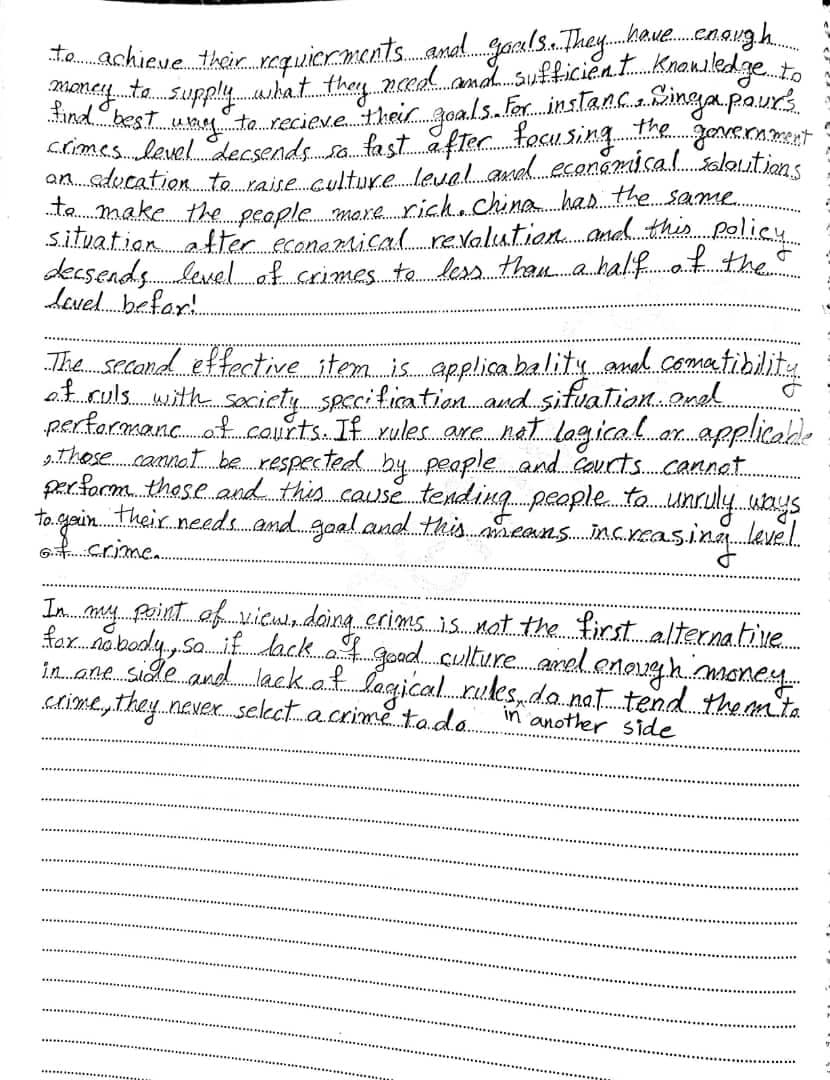 to achieve their requierments and goals. They have enough
money to supply what they need and sufficient knowledge to
find best way to recieve their goals. For instanc, Singapour's
crimes level decsends so fast after focusing the government
on education to raise culture level and economical saloutions
to make the people more rich. China has the same
situation after economical revolution and this policy
decsends level of crimes to less than a half of the
level befor!
The second effective item is applicabality and comatibility
of ruls with society specification and situation and
performanc of courts. If rules are not logical or applicable
, those cannot be respected by people and courts cannot
perform those and this cause tending people to unruly ways
to gain their needs and goal and this means increasing level
of crime.
In my point of view, doing crims is not the first alternative
for nobody, so if lack of good culture and enough money
in one side and lack of logical rules, do not tend them to
crime, they never select a crime to do in another side